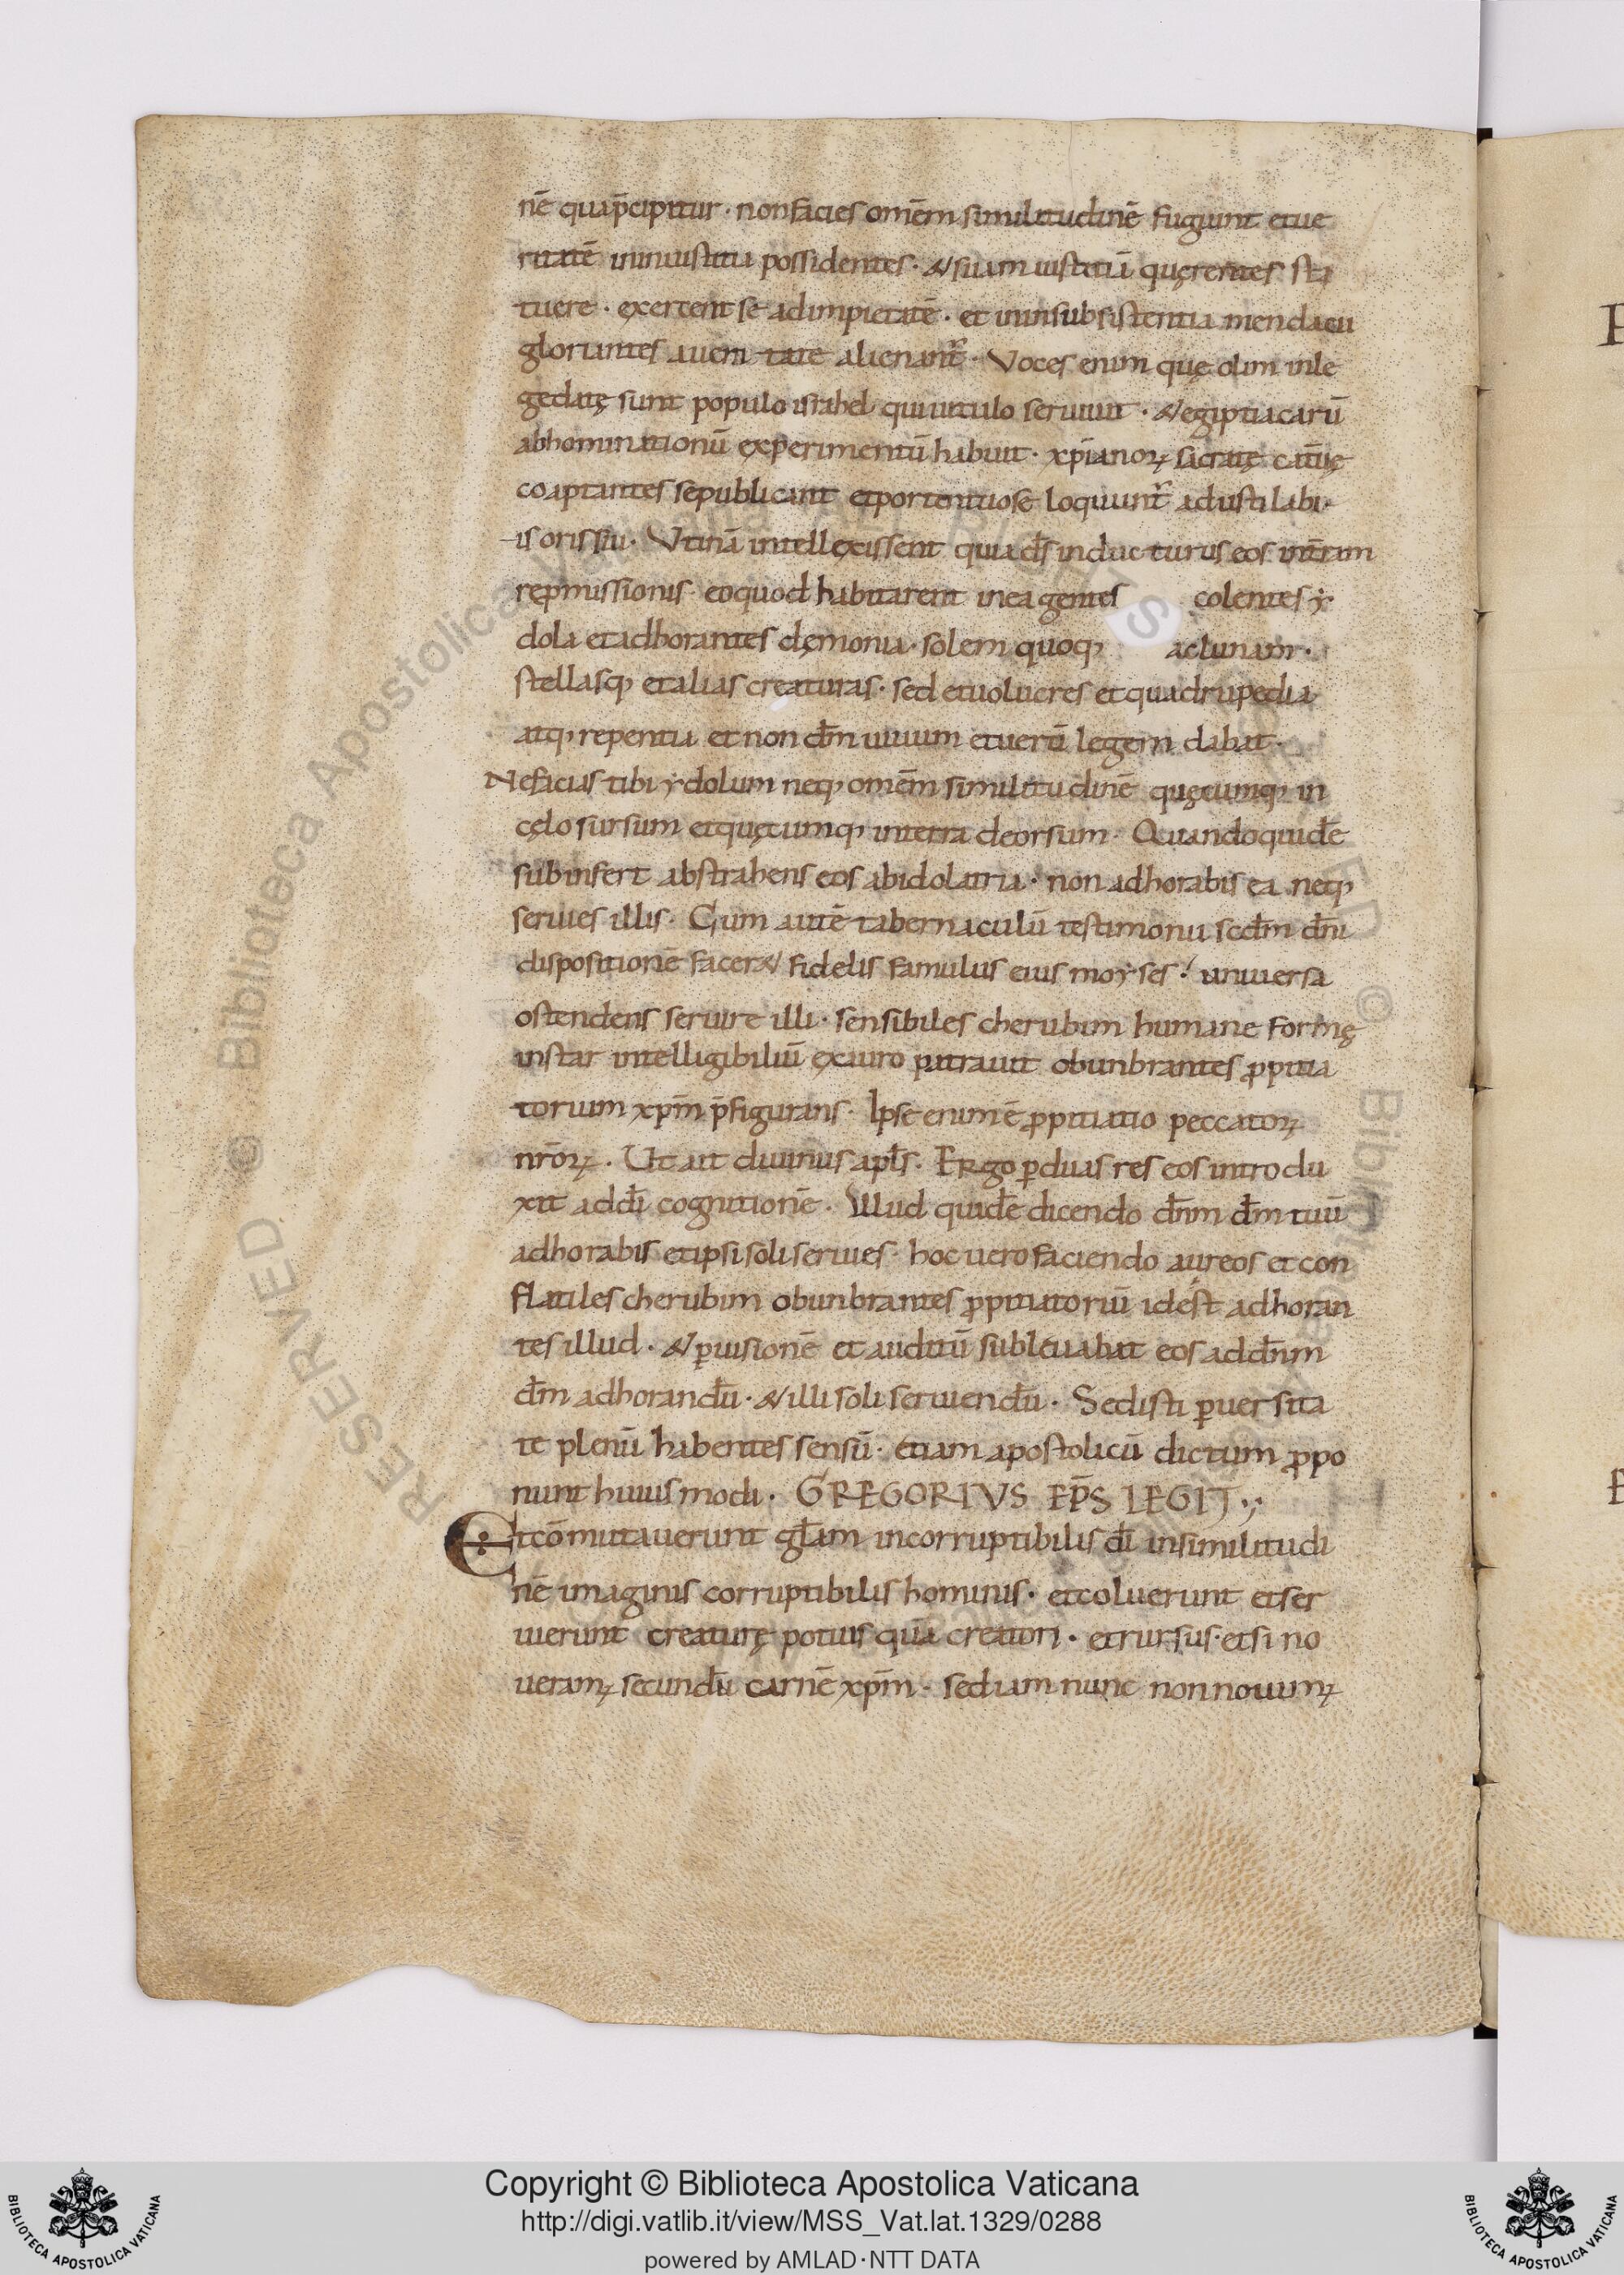 nē qua p̄cipitur · non facies omēm similitudinē fugiunt et ue
ritatē in iniustitia possidentes · & suam iustitiā quęrentes sta
tuere · exercent se ad impietatē · et in insubsistentia mendacii
gloriantes a ueritate alienant᷑ · Voces enim quę olim in le
ge datę sunt populo israhel qui uitulo seruiuit · & egiptiacarū
abhominationū experimentū habuit · xp̄ianoꝝ sacratę catuę
coaptantes se publicant et portentuose loquunt᷑ adusti labi
is oris sui · Vtinā intellexissent quia d̄s inducturus eos in terram
repmissionis · eo quod habitarent in ea gentes colentes ẏ
dola et adhorantes dęmonia · solem quoq; ac lunam ·
stellasq; et alias creaturas · sed et uolucres et quadrupedia
atq; repentia et non d̄m uiuum et uerū legem dabat ·
Ne facias tibi ydolum neq; omēm similitudinē quęcumq; in
cęlo sursum et quęcumq; in terra deorsum · Quandoquidē
subinfert abstrahens eos ab idolatria · non adhorabis ea neq;
seruies illis · Cum autē tabernaculū testimonii scd̄m dn̄i
dispositionē facer& fidelis famulus eius moyses · uniuersa
ostendens seruire illi · sensibiles cherubim humane formę
instar intelligibiliū ex auro patrauit obunbrantes ꝓpitia
torium xp̄m p̄figurans · Ipse enim ē ꝓpitiatio peccatoꝝ
nr̄oꝝ · Ut ait diuinus apl̄s · Ergo ꝑ duas res eos introdu
xit ad dī cognitionē · Illud quidē dicendo dn̄m d̄m tuū
adhorabis et ipsi soli seruies · hoc uero faciendo aureos et con
flatiles cherubim obunbrantes ꝓpitiatoriū idest adhoran
tes illud · & ꝑ uisionē et auditū subleuabat eos ad dn̄m
d̄m adhorandū · & illi soli seruiendū · Sed isti ꝑuersita
te plenū habentes sensū · etiam apostolicū dictum ꝓpo
nunt huiusmodi · GREGORIVS EP̄S LEGIT ·,·
Et cōmutauerunt gl̄am incorruptibilis dī in similitudi
nē imaginis corruptibilis hominis · et coluerunt et ser
uierunt creaturę potius quā creatori · et rursus · et si no
ueramꝰ secundū carnē xp̄m · sed iam nunc non nouimꝰ
Copyright © Biblioteca Apostolica Vaticana
http://digi.vatlib.it/view/MSS_Vat.lat.1329/0288
powered by AMLAD·NTT DATA